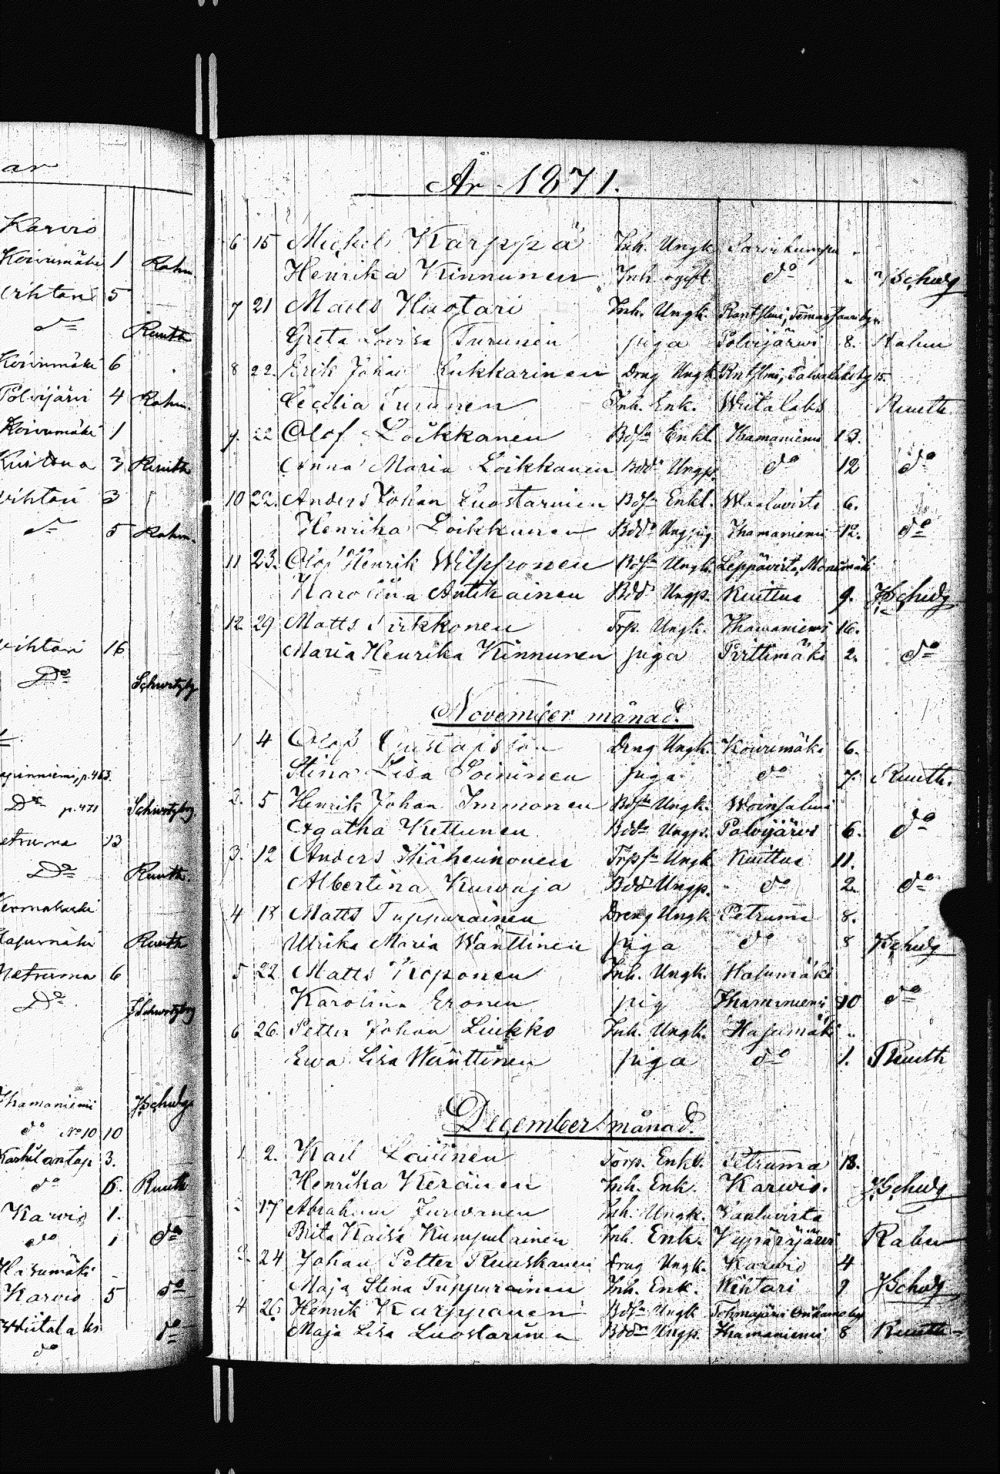 ar
Karvio
Koivumäki 1 Rahm.
vihtari 5
do Ruuth
Koivumäki 6
Polvijärvi 4 Rahm.
Koivumäki 1
Kuittua 3 Ruuth
vihtari 3
do 5 Rahm.
vihtari 16
Do Schwrtzbg
p. 463.
Do p. 471 Schwrtzbg
Petruma 13
Do Ruuth.
Kermalaski
Hasumäki Ruuth
Petruma 6
Do JSchwrtzbg
Thamaniemi JSchwbg
do No 10 10
3.
do 6. Ruuth
Karvio 1.
do 1 do
Hasumäki
Karvio 5 do
Wiitalaks do
do
År 1871.
6 15 Michel Karppä Inh. Ungk. Sarvikumpu "
Henrika Kinnunen Inh. do " JSchwbg
7 21 Matts Huotari Inh. Ungk. Rantslmi,
Greta Lovisa Turunen piga Polvijärvi 8. Rahm
8 22. Erik Johan Lukkarinen Dreng Ungk. Rntslmi, 15.
Cecilia Turunen Inh. Enk. Wiitalaks Ruuth
9. 22 Olof Loikkanen Bdsn Enkl. Thamaniemi 13.
Anna Maria Loikkanen Bddr Ungp. do 12 do
10 22. Anders Johan Luostarinen Bdsn Enkl. Waaluvirta 6.
Henrika Loikkanen Bddr Ungpig. Thamaniemi 12. do
11 23. Olof Henrik Wilpponen Bdsn Ungk. Leppävirta,
Karolina Antikainen Bddr Ungp. Kuittua 9. JSchwbg
12. 29 Matts Tirkkonen Trp. Ungk. Thamaniemi 16.
Maria Henrika Kinnunen piga Pirttimäki 2. do
November månad.
1 4 Olof Gustafsson Dreng Ungk. Koivumäki 6.
Stina Lisa Soininen piga do 7. Ruuth.
2. 5 Henrik Johan Immonen Bdsn Ungk. Woinsalmi
Agatha Kettunen Bddr Ungp. Polvijärvi 6. do
3. 12 Anders Kähkönen Trpsn Ungk Kuittua 11.
Albertina Kuvaja Bddr Ungp. do 2 do
4 18 Matts Tuppurainen Dreng Ungk Petruma 8.
Ulrika Maria Wänttinen piga do 8 JSchwbg
5 22 Matts Koponen Inh. Ungk. Hasumäki
Karolina Eronen pig Thamaniemi 10 do
6 26. Petter Johan Liukko Inh. Ungk. Hasumäki "
Ewa Lisa Wänttinen piga do 1. Ruuth
December månad.
1. 2. Karl Laitinen Torp. Enkl. Petruma 18.
Henrika Keränen Inh. Enk. Karvio. JSchwbg
17 Abraham Turunen Inh. Ungk. Waaluvirta
Brita Kaisa Kumpulainen Inh. Enk. Rahm
3 24 Johan Petter Ruuskanen Drng Ungk. Karvio 4
Maja Stina Tuppurainen Inh. Enk. Wihtari 9 JSchwbg
4 26. Henrik Karppanen Bdsn Ungk
Maja Lisa Luostarinen Bddr Ungp. Thamaniemi 8 Ruuth